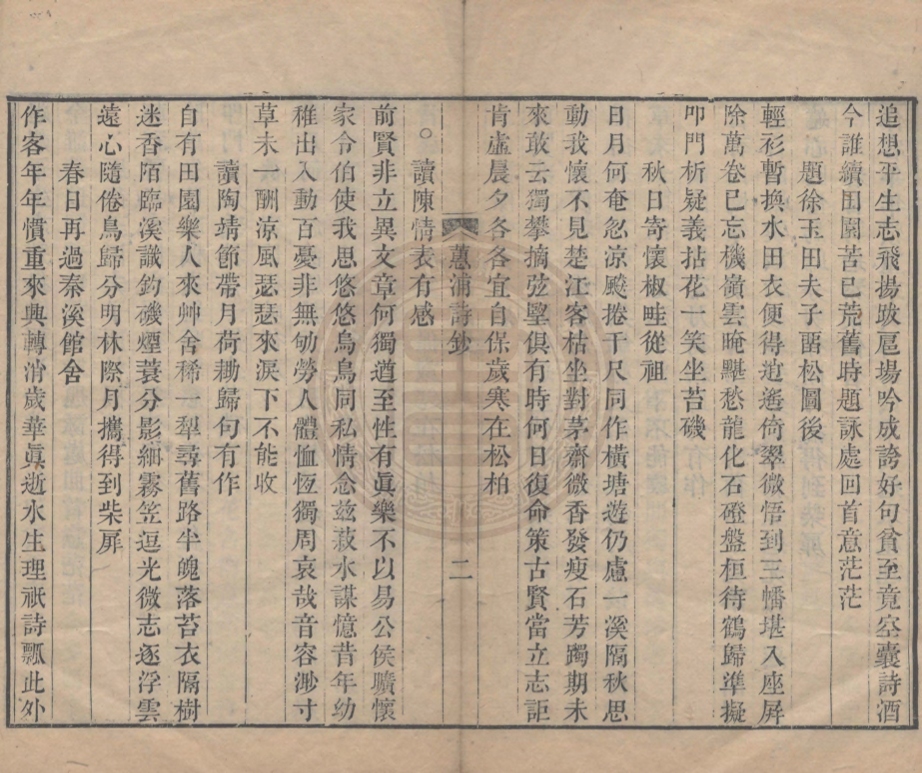 追想平生志飛揚跋扈場吟成誇好句貧至竟空囊詩酒
今誰續田園苦已荒舊時題詠處回首意茫茫
題徐玉田夫子畱松圖後
輕衫暫換水田衣便得逍遙倚翠微悟到三幡堪入座屏
除萬卷已忘機嶺雲晻靆愁龍化石磴盤桓待鶴歸準擬
叩門析疑義拈花一笑坐苔磯
秋日寄懷椒畦從祖
日月何奄忽涼颷捲干尺同作橫塘遊仍慮一溪隔秋思
動我懷不見楚江客枯坐對茅齋微香發瘦石芳躅期未
來敢云獨攀摘弦壂俱有時何日復命策古賢當立志詎
肯虛晨夕各各宜自保歲寒在松柏
蕙浦詩鈔
二
讀陳情表有感
前賢非立異文章何獨遒至性有眞樂不以易公侯曠懷
家令伯使我思悠悠烏鳥同私情念玆菽水謀憶昔年幼
稚出入動百憂非無劬勞人體恤恆獨周哀哉音容渺寸
草未一酬涼風瑟瑟來淚下不能收
讀陶靖節帶月荷耡歸句有作
自有田園樂人來艸舍稀一犁尋舊路半魄落苔衣隔樹
迷香陌臨溪識釣磯煙蓑分影細霧笠逗光微志逐浮雲
遠心隨倦鳥歸分明林際月攜得到柴屝
春日再過秦溪館舍
作客年年慣重來興轉消歲華眞逝水生理祇詩瓢此外